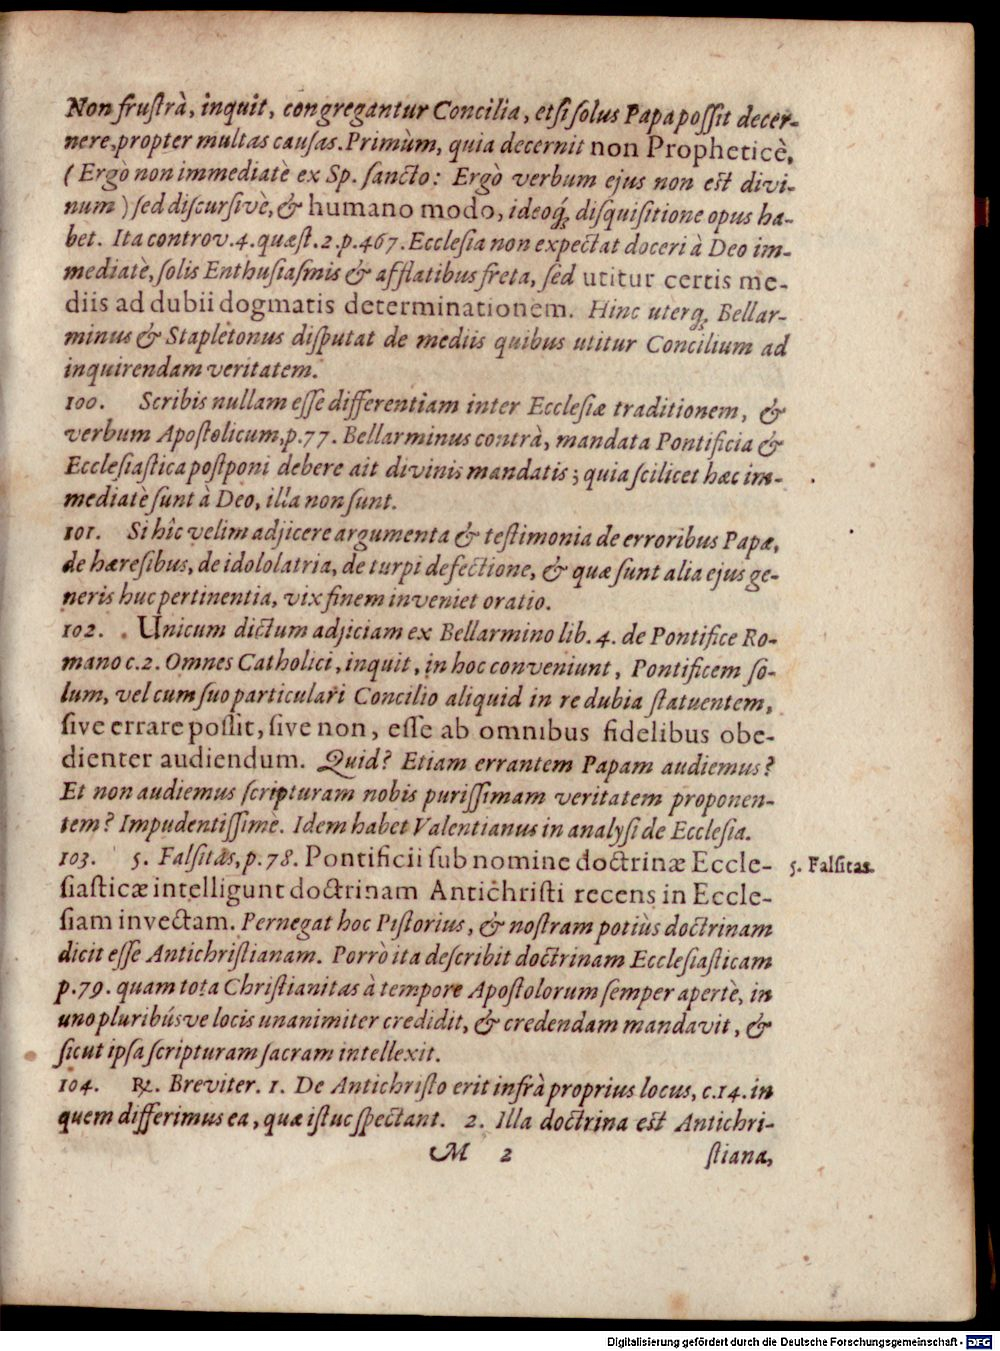 Non frustrà, inquit, congregantur Concilia, etsi solus Papa possit decer-
nere, propter multas causas. Primùm, quia decernit non Propheticè,
(Ergò non immediatè ex Sp. sancto: Ergò verbum ejus non est divi-
num) sed discursivè, & humano modo, ideoq́; disquisitione opus ha-
bet. Ita controv. 4. quæst. 2. p. 467. Ecclesia non expectat doceri à Deo im-
mediatè, solis Enthusiasmis & afflatibus freta, sed utitur certis me-
diis ad dubii dogmatis determinationem. Hinc uterq; Bellar-
minus & Stapletonus disputat de mediis quibus utitur Concilium ad
inquirendam veritatem.
100. Scribis nullam esse differentiam inter Ecclesiæ traditionem, &
verbum Apostolicum, p. 77. Bellarminus contrà, mandata Pontificia &
Ecclesiastica postponi debere ait divinis mandatis; quia scilicet hæc im-
mediatè sunt à Deo, illa non sunt.
101. Si hîc velim adjicere argumenta & testimonia de erroribus Papæ,
de hæresibus, de idololatria, de turpi defectione, & quæ sunt alia ejus ge-
neris huc pertinentia, vix finem inveniet oratio.
102. Unicum dictum adjiciam ex Bellarmino lib. 4. de Pontifice Ro-
mano c. 2. Omnes Catholici, inquit, in hoc conveniunt, Pontificem so-
lum, vel cum suo particulari Concilio aliquid in re dubia statuentem,
sive errare possit, sive non, esse ab omnibus fidelibus obe-
dienter audiendum. Quid? Etiam errantem Papam audiemus?
Et non audiemus scripturam nobis purissimam veritatem proponen-
tem? Impudentissimè. Idem habet Valentianus in analysi de Ecclesia.
103. 5. Falsitas, p. 78. Pontificii sub nomine doctrinæ Eccle-
siasticæ intelligunt doctrinam Antichristi recens in Eccle-
siam invectam. Pernegat hoc Pistorius, & nostram potiùs doctrinam
dicit esse Antichristianam. Porrò ita describit doctrinam Ecclesiasticam
p. 79. quam tota Christianitas à tempore Apostolorum semper apertè, in
uno pluribúsve locis unanimiter credidit, & credendam mandavit, &
sicut ipsa scripturam sacram intellexit.
104. ℞. Breviter. 1. De Antichristo erit infrà proprius locus, c. 14. in
quem differimus ea, quæ istuc spectant. 2. Illa doctrina est Antichri-
M 2 stiana,
5. Falsitas.
Digitalisierung gefördert durch die Deutsche Forschungsgemeinschaft - DFG